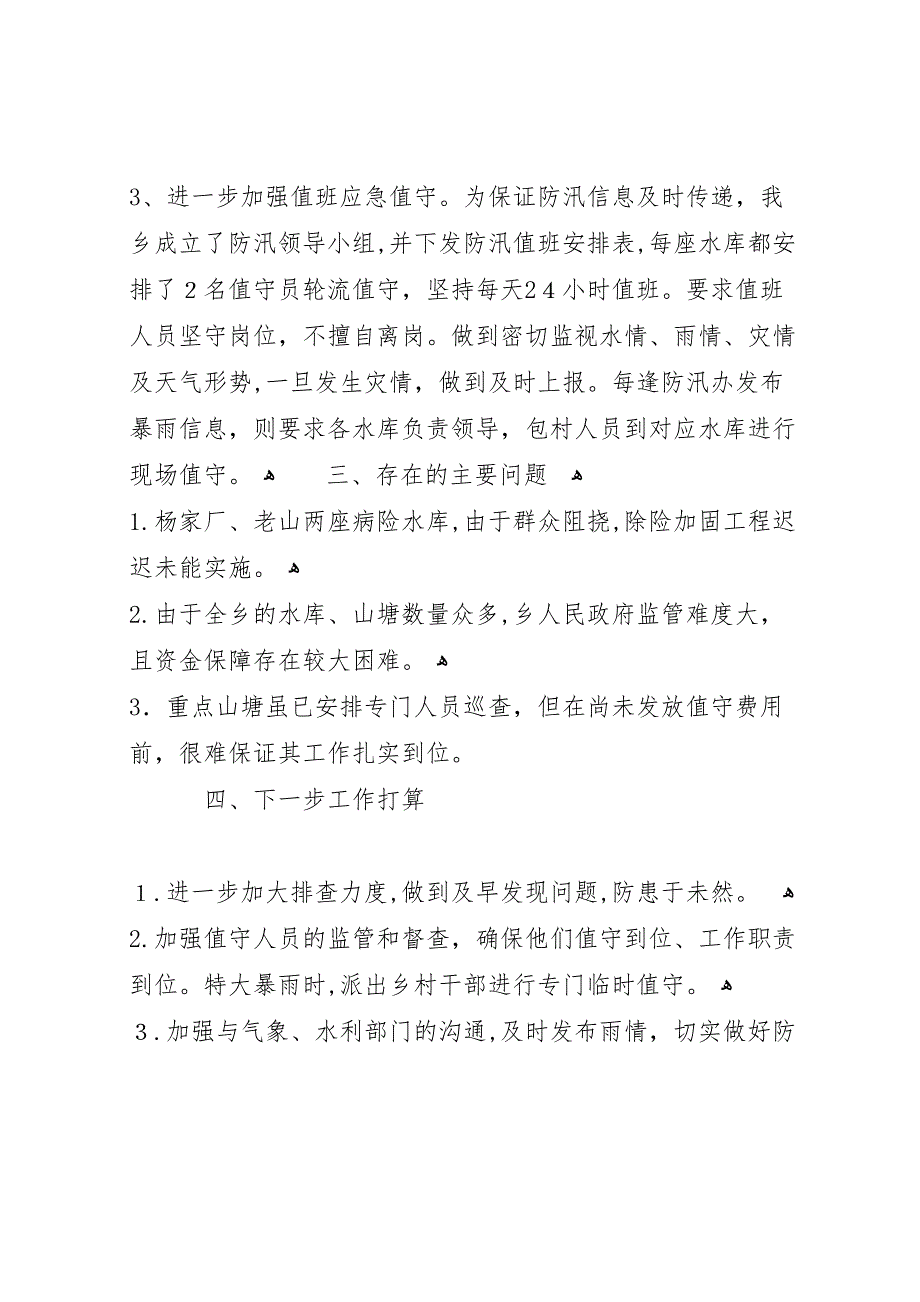 3、进一步加强值班应急值守。为保证防汛信息及时传递，我
乡成立了防汛领导小组,并下发防汛值班安排表,每座水库都安
排了２名值守员轮流值守，坚持每天2４小时值班。要求值班
人员坚守岗位，不擅自离岗。做到密切监视水情、雨情、灾情
及天气形势,一旦发生灾情，做到及时上报。每逢防汛办发布
暴雨信息，则要求各水库负责领导，包村人员到对应水库进行
现场值守。 ﻫ 三、存在的主要问题 ﻫ
1.杨家厂、老山两座病险水库,由于群众阻挠,除险加固工程迟
迟未能实施。 ﻫ
2.由于全乡的水库、山塘数量众多,乡人民政府监管难度大，
且资金保障存在较大困难。 ﻫ
3．重点山塘虽已安排专门人员巡查，但在尚未发放值守费用
前，很难保证其工作扎实到位。
四、下一步工作打算
１.进一步加大排查力度,做到及早发现问题,防患于未然。 ﻫ
2.加强值守人员的监管和督查，确保他们值守到位、工作职责
到位。特大暴雨时,派出乡村干部进行专门临时值守。 ﻫ
３.加强与气象、水利部门的沟通,及时发布雨情，切实做好防